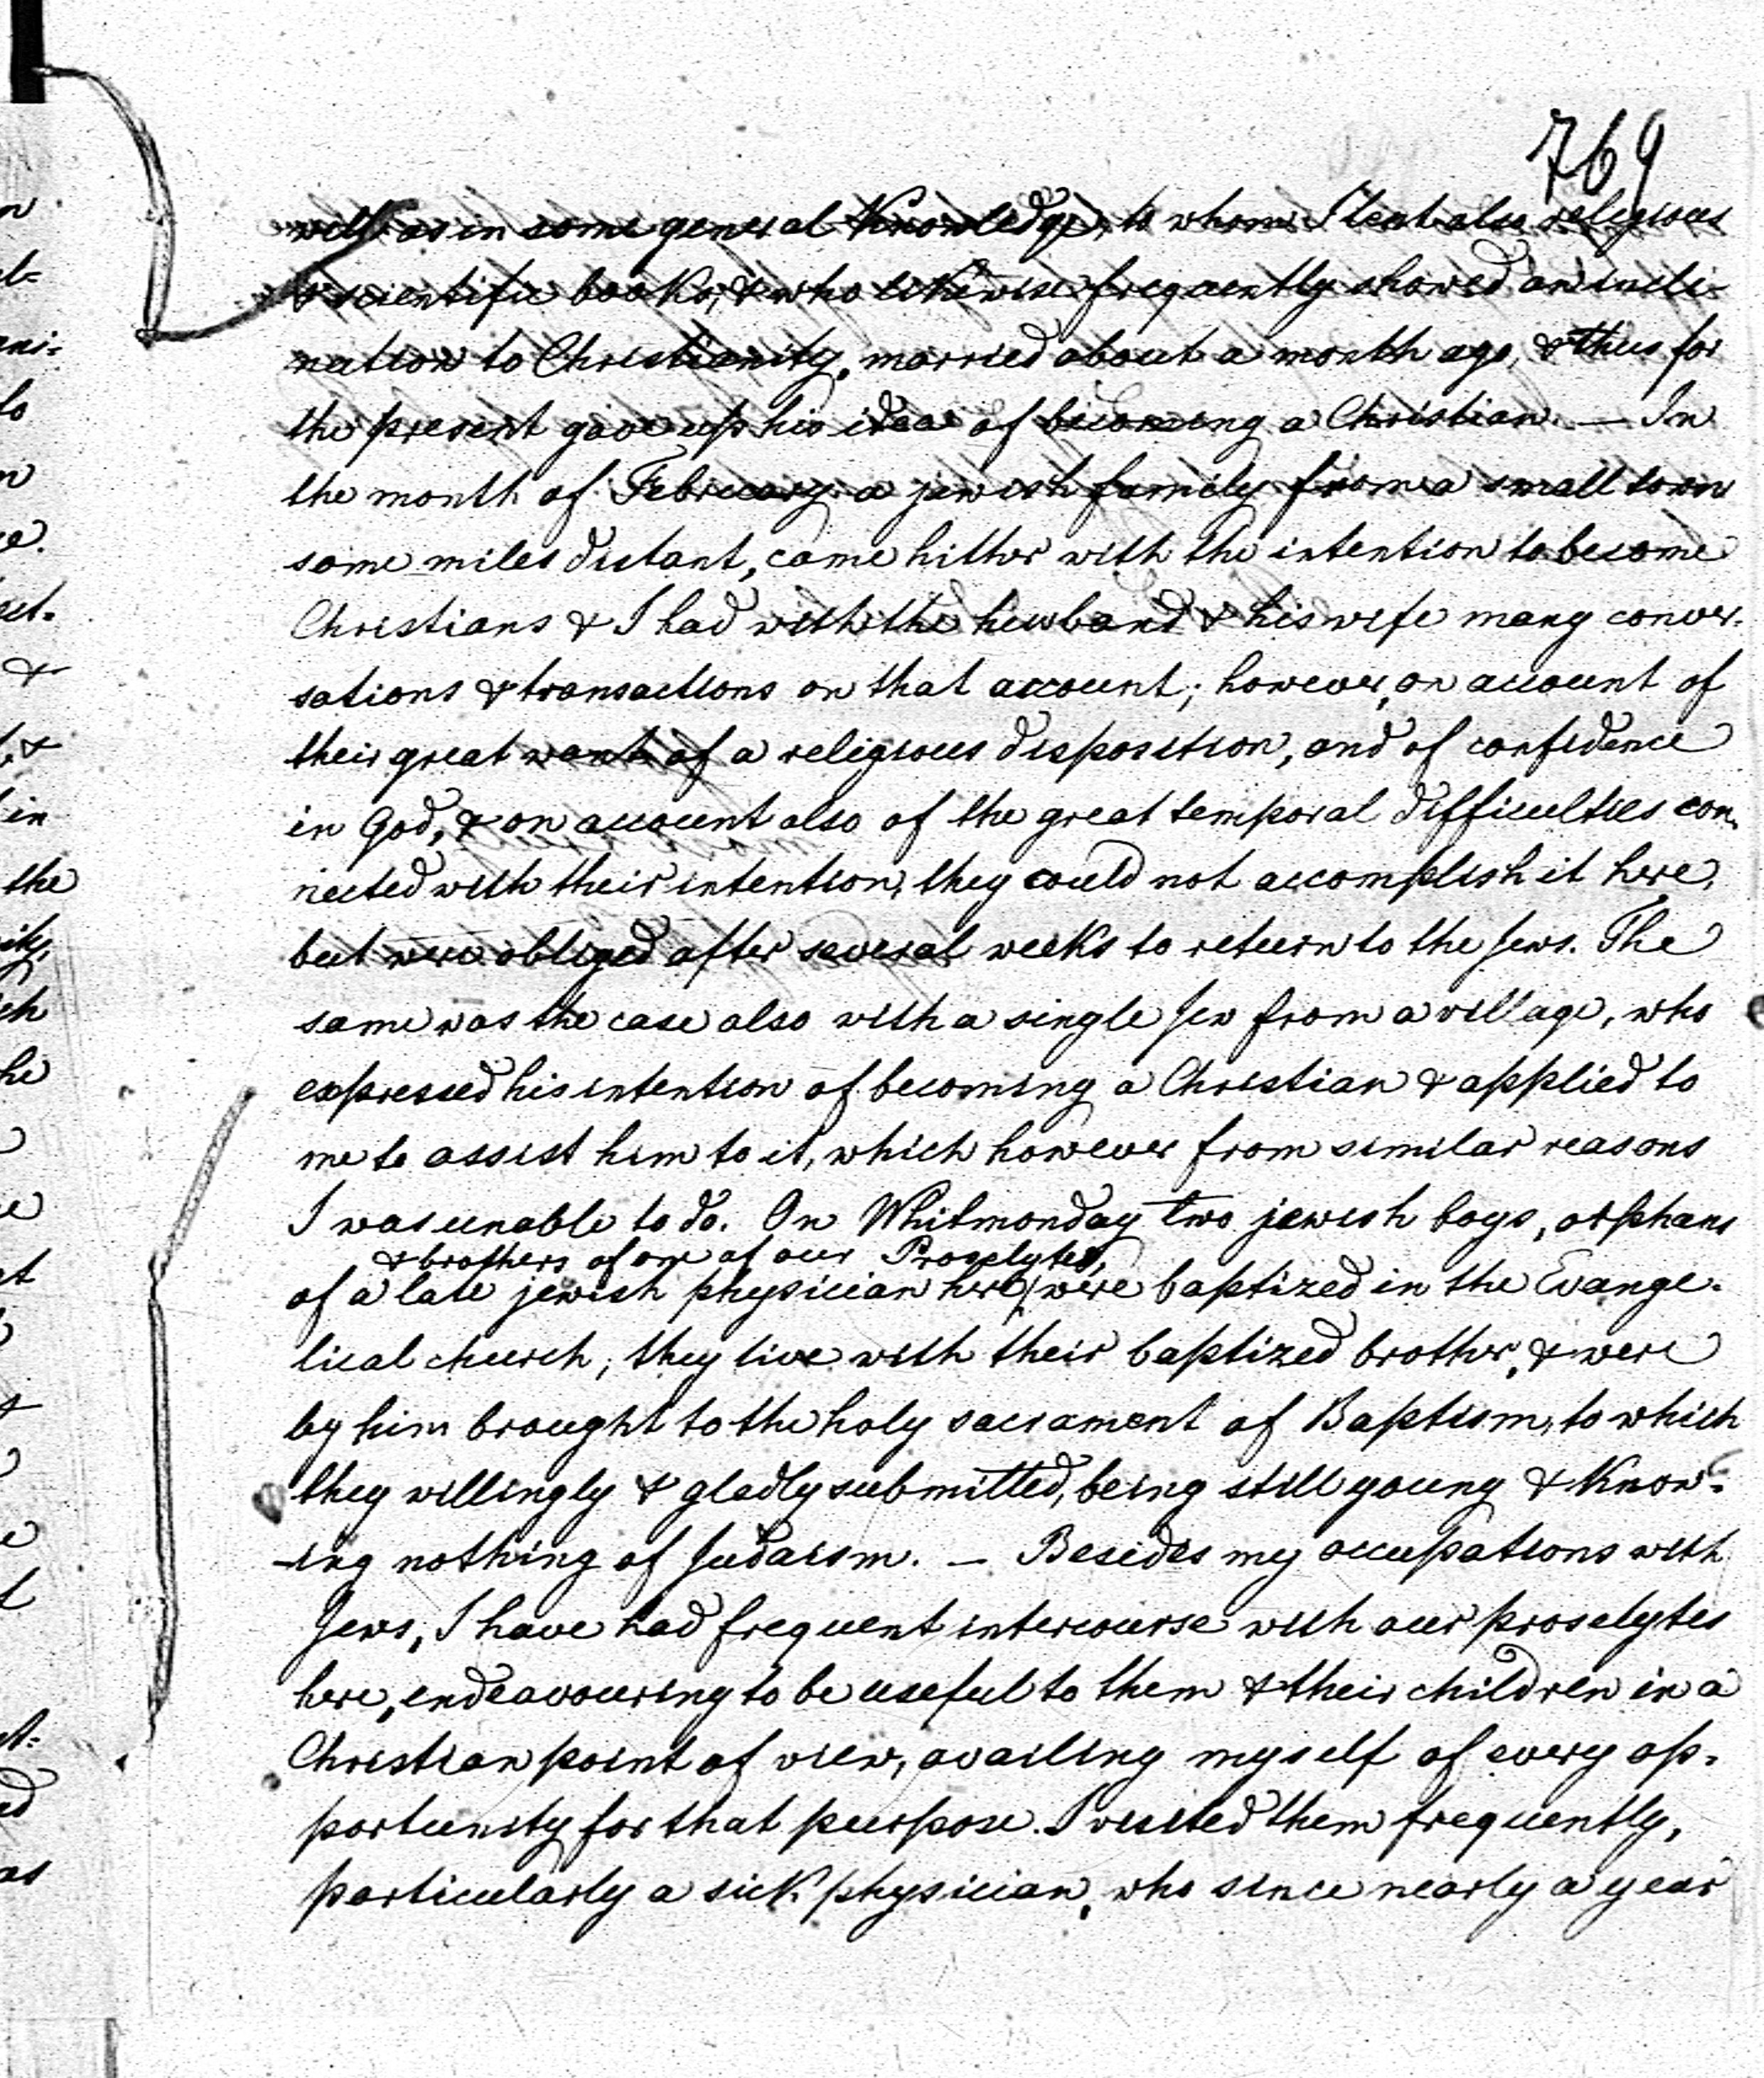 769
well as in some general Knowledge, to whom I lent also religious
& scientific books, & who likewise frequently showed an incli-
nation to Christianity, married about a month ago, & thus for
the present gave up his idea of becoming a Christian. — In
the month of February a jewish family from a small town
some miles distant, came hither with the intention to become
Christians & I had with the husband & his wife many conver-
sations & transactions on that account; however, on account of
their great want of a religious disposition, and of confidence
in God, & on account also of the great temporal difficulties con-
nected with their intention, they could not accomplish it here,
but were obliged after several weeks to return to the Jews. The
same was the case also with a single Jew from a village, who
expressed his intention of becoming a Christian & applied to
me to assist him to it, which however from similar reasons
I was unable to do. On Whitmonday two jewish boys, orphans
& brothers of one of our Proselytes,
of a late jewish physician here, were baptized in the Evange-
lical church; they live with their baptized brother, & were
by him brought to the holy sacrament of Baptism, to which
they willingly & gladly submitted, being still young & Know-
-ing nothing of Judaism. — Besides my occupations with
Jews, I have had frequent intercourse with our proselytes
here, endeavouring to be useful to them & their children in a
Christian point of view, availing myself of every op-
portunity for that purpose. I visited them frequently,
particularly a sick physician, who since nearly a year